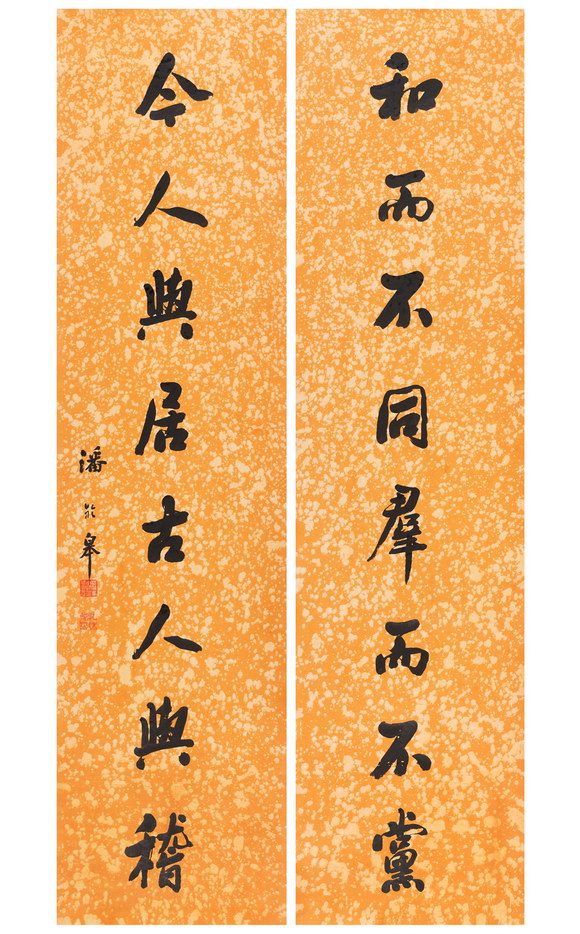 和而不同羣而不黨
今人與居古人與稽
潘齡皋